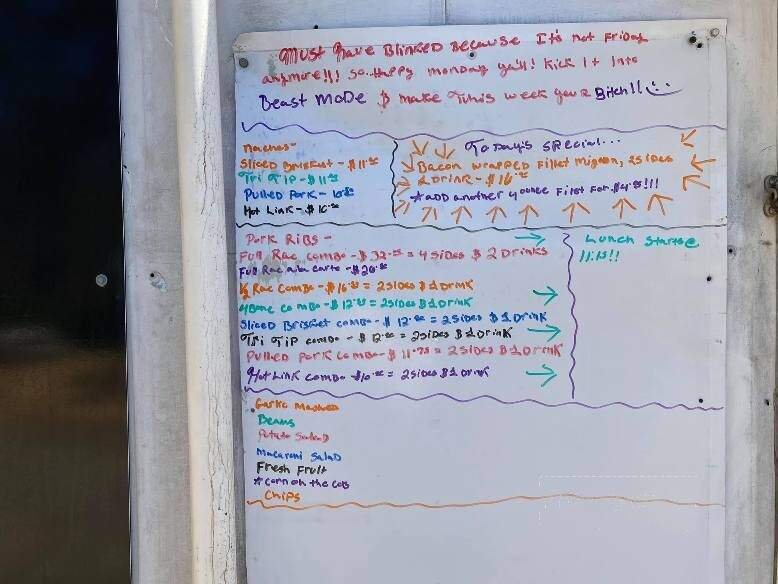 Must have Blinked Because It's not Friday
anymore!!! So..Happy monday ya'll! Kick It Into
Beast Mode $ make This week your Bitch!!
Nachos-
Sliced Brisket - $11.
Tri Tip - $11.
Pulled Pork -
Hot Link - $10.
Today's Special...
Bacon wrapped Fillet Mignon, 2 sides
1 Drink - $16.
*ADD another 4 ounce Filet For $4.
Pork Ribs -
Full Rac combo - $32. = 4 Sides $ 2 Drinks
Full Rac ala carte - $20.
½ Rac Combo - $16. = 2 Sides $ 1 Drink
4 Bone combo - $12. = 2 Sides $ 1 Drink
Sliced Brisket combo - $12. = 2 Sides $ 1 Drink
Tri Tip combo - $12. = 2 Sides $ 1 Drink
Pulled Pork Combo - $11.75 = 2 Sides $ 1 Drink
Hot Link combo - $10. = 2 Sides $ 1 Drink
Lunch starts @
11:15!!
Garlic Mashed
Beans
Potato Salad
Macaroni Salad
Fresh Fruit
*corn on the cob
Chips